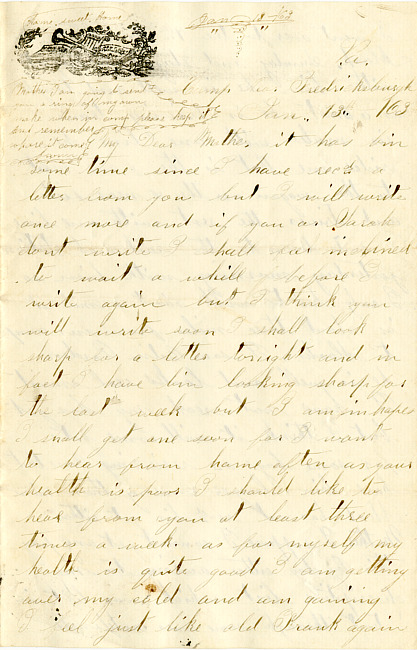 Home sweet home
Jan 13 /63
Va.
Mother I am going to send
you a ring of my own
make when in camp please keep it
but remember
where it came
Camp near Fredricksburgh
Jan. 13th /63
My Dear Mother it has bin
some time since I have recd a
letter from you but I will write
once more and if you or Sarah
dont write I shall feel inclined
to wait a whill before I
write again but I think you
will write soon I shall look
sharp for a letter tonight and in
fact I have bin looking sharp for
the last week but I am in hopes
I shall get one soon for I want
to hear from home often as your
health is poor I should like to
hear from you at least three
times a week. as for myself my
health is quite good I am getting
over my cold and am gaining
I feel just like old Frank again